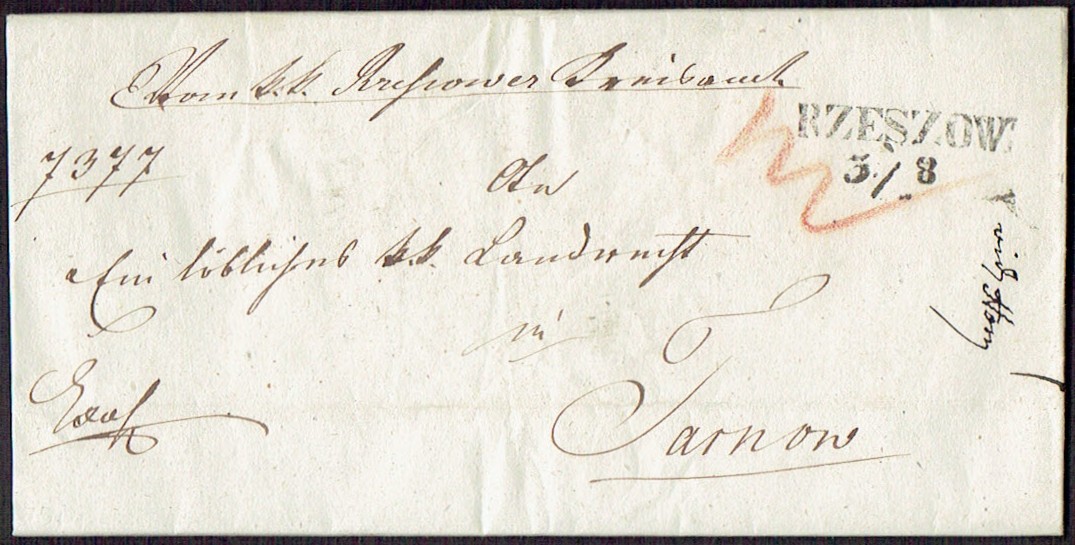 Vom k.k. Rzeszower Kreisamt
RZESZOW.
3./8
7377
An
Ein löbliches k.k. Landrecht
in
Tarnow